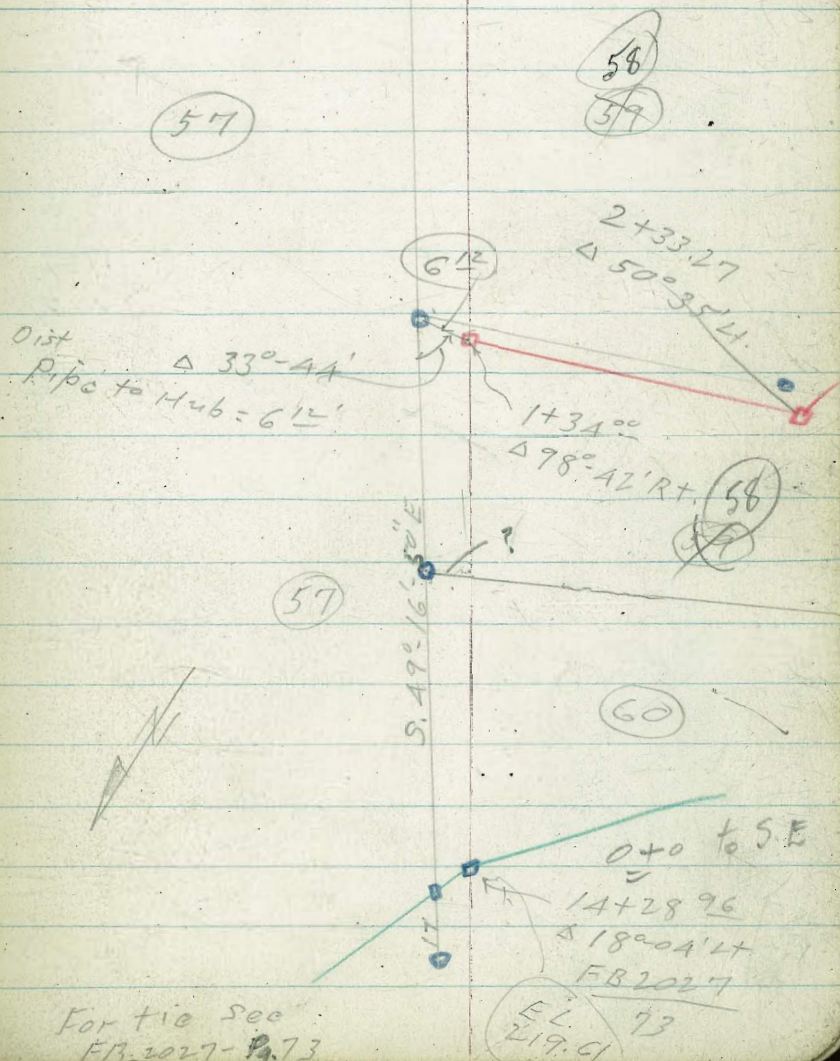 58
59
57
2+33.27
Δ 50°35'Lt.
6 12
Dist
Pipe to Hub = 6 12'
Δ 33°-44'
1+34 00
Δ 98°-42' Rt.
58
59
?
S. 49°-16'-50" E
57
N
60
0+0 to S E
=
14+28 96
Δ 18°-04' Lt
FB 2027
73
17
EL.
219.61
For tie see
FB. 2027 - Pg. 73